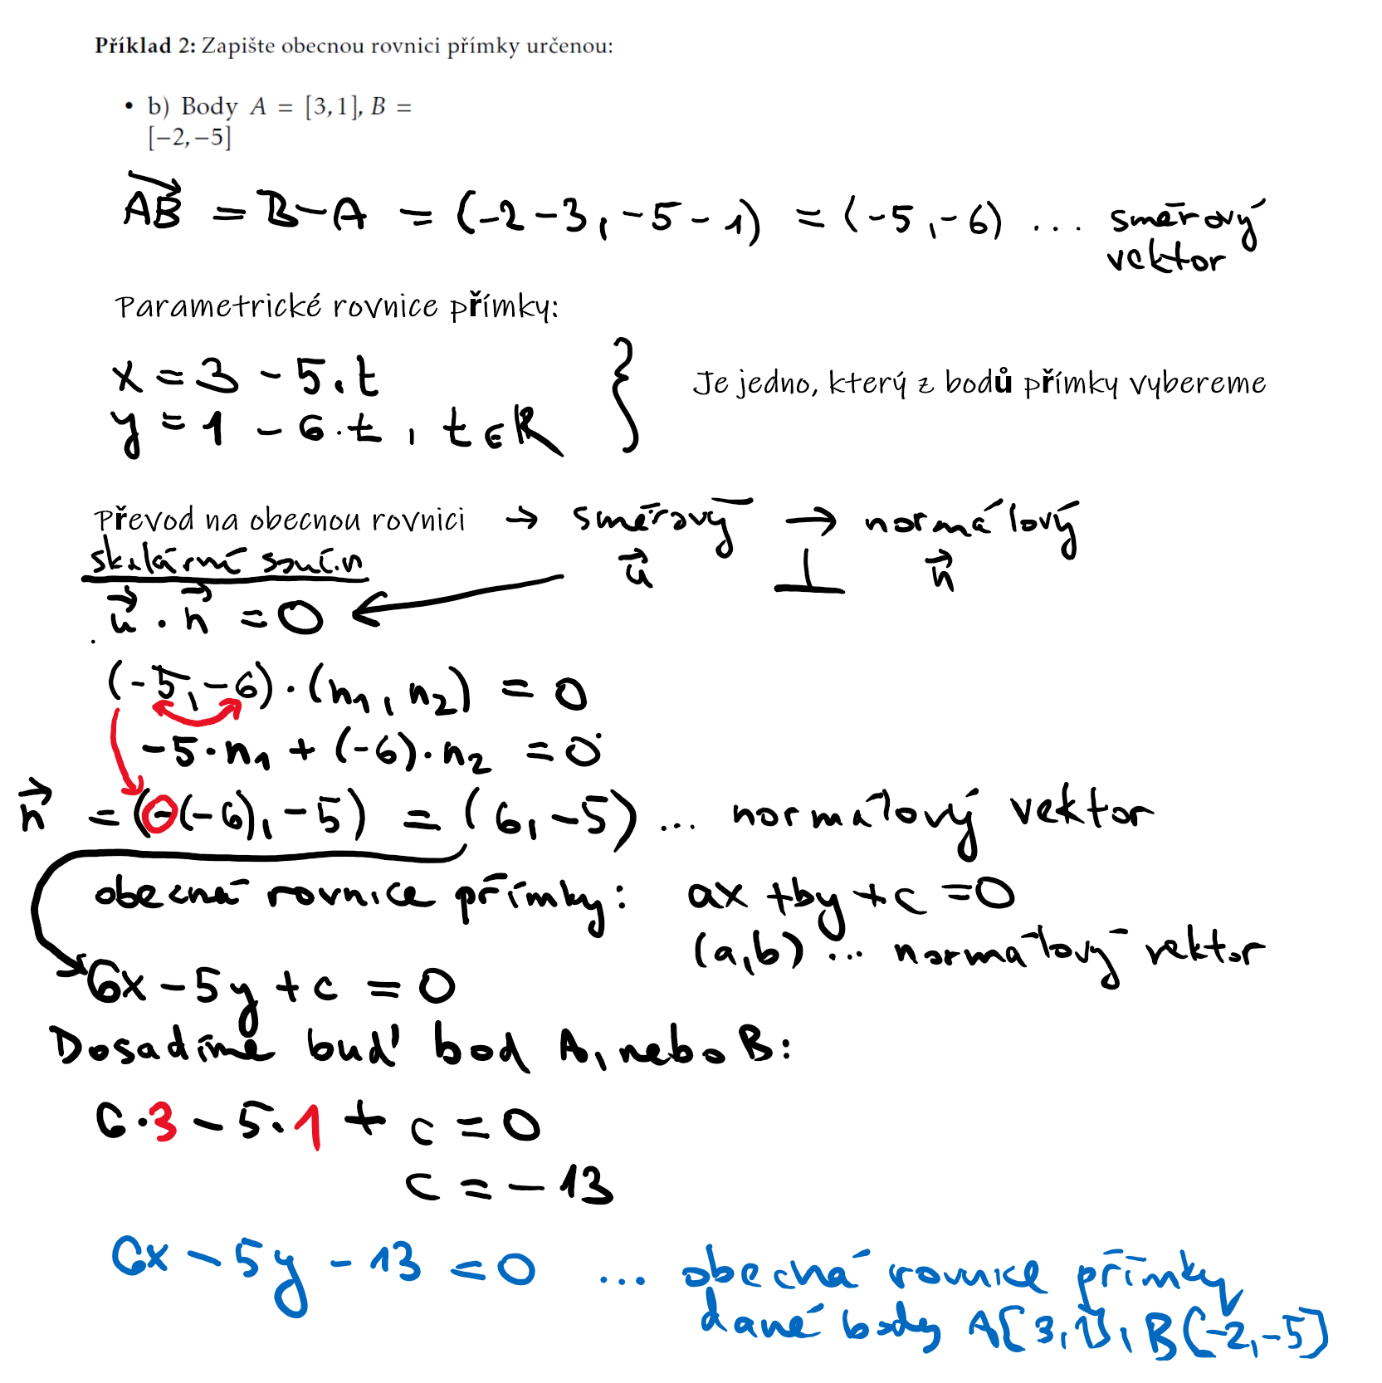 Příklad 2: Zapište obecnou rovnici přímky určenou:
• b) Body A = [3,1], B =
[−2,−5]
AB = B−A = (-2-3, -5-1) = (-5, -6) ... směrový
vektor
Parametrické rovnice přímky:
x = 3 - 5.t
y = 1 - 6.t, t∈R } Je jedno, který z bodů přímky vybereme
Převod na obecnou rovnici → směrový → normálový
skalární součin u ⊥ n
u · n = 0
(-5, -6) · (n1, n2) = 0
-5·n1 + (-6)·n2 = 0
n = (-(-6), -5) = (6, -5) ... normálový vektor
obecná rovnice přímky: ax + by + c = 0
(a,b) ... normálový vektor
6x - 5y + c = 0
Dosadíme buď bod A, nebo B:
6·3 - 5·1 + c = 0
c = -13
6x - 5y - 13 = 0 ... obecná rovnice přímky
dané body A[3,1], B[-2,-5]